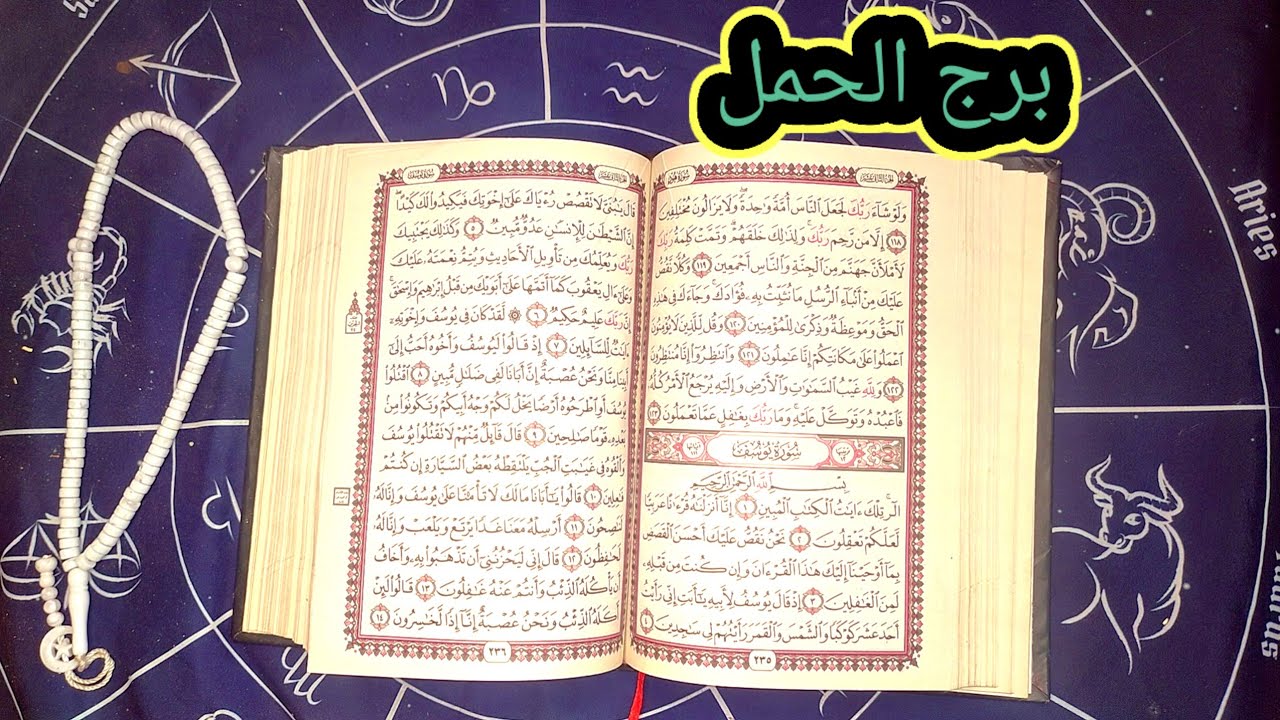 برج الحمل
Aries
سورة هود
ولو شاء ربك لجعل الناس أمة واحدة ولا يزالون مختلفين
١١٨ إلا من رحم ربك ولذلك خلقهم وتمت كلمة ربك
لأملأن جهنم من الجنة والناس أجمعين ١١٩ وكلا نقص
عليك من أنباء الرسل ما نثبت به فؤادك وجاءك في هذه
الحق وموعظة وذكرى للمؤمنين ١٢٠ وقل للذين لا يؤمنون
اعملوا على مكانتكم إنا عملون ١٢١ وانتظروا إنا منتظرون
١٢٢ ولله غيب السموت والأرض وإليه يرجع الأمر كله
فاعبده وتوكل عليه وما ربك بغفل عما تعملون ١٢٣
سورة يوسف
بسم الله الرحمن الرحيم
الر تلك ءايت الكتب المبين ١ إنا أنزلنه قرءنا عربيا
لعلكم تعقلون ٢ نحن نقص عليك أحسن القصص
بما أوحينا إليك هذا القرءان وإن كنت من قبله
لمن الغفلين ٣ إذ قال يوسف لأبيه يأبت إني رأيت
أحد عشر كوكبا والشمس والقمر رأيتهم لي سجدين ٤
٢٣٥
سورة يوسف
قال يبني لا تقصص رءياك على إخوتك فيكيدوا لك كيدا
إن الشيطن للإنسن عدو مبين ٥ وكذلك يجتبيك
ربك ويعلمك من تأويل الأحاديث ويتم نعمته عليك
وعلى ءال يعقوب كما أتمها على أبويك من قبل إبرهيم وإسحق
إن ربك عليم حكيم ٦ ۞ لقد كان في يوسف وإخوته
ءايت للسائلين ٧ إذ قالوا ليوسف وأخوه أحب إلى
أبينا منا ونحن عصبة إن أبانا لفي ضلل مبين ٨ اقتلوا
يوسف أو اطرحوه أرضا يخل لكم وجه أبيكم وتكونوا من
بعده قوما صلحين ٩ قال قائل منهم لا تقتلوا يوسف
وألقوه في غيبت الجب يلتقطه بعض السيارة إن كنتم
فعلين ١٠ قالوا يأبانا ما لك لا تأمنا على يوسف وإنا له
لنصحون ١١ أرسله معنا غدا يرتع ويلعب وإنا له
لحفظون ١٢ قال إني ليحزنني أن تذهبوا به وأخاف
أن يأكله الذئب وأنتم عنه غفلون ١٣ قالوا لئن
أكله الذئب ونحن عصبة إنا إذا لخسرون ١٤
٢٣٦